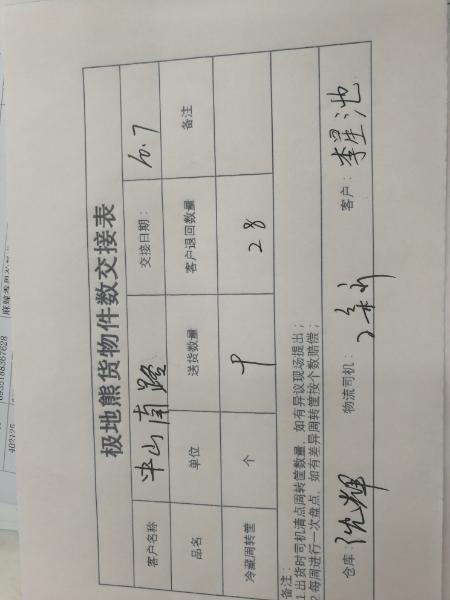 极地熊货物件数交接表
客户名称 中山南路 交接日期： 10.7
品名 单位 送货数量 客户退回数量 备注
冷藏周转筐 个 28
备注：
1.出货时司机清点周转筐数量，如有异议现场提出；
2.每周进行一次盘点，如有差异周转筐按个数赔偿；
仓库：沈辉 物流司机： 客户：李星池